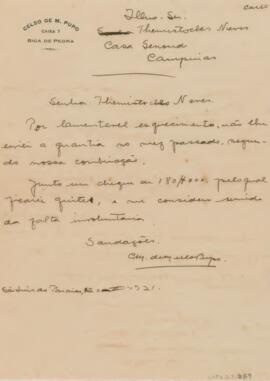 CELSO DE M. PUPO
CAIXA 7
BICA DE PEDRA
Illmo. Sr.
Themistocles Neves
Casa Genoud
Campinas
Senhor Themistocles Neves.
Por lamentavel esquecimento, não lhe
enviei a quantia no mez passado, segun-
do nossa combinação.
Junto um cheque de 180#000 pelo qual
ficarei quites, e me considere remido
da falta involuntaria.
Saudações.
Celso de Mello Pupo.